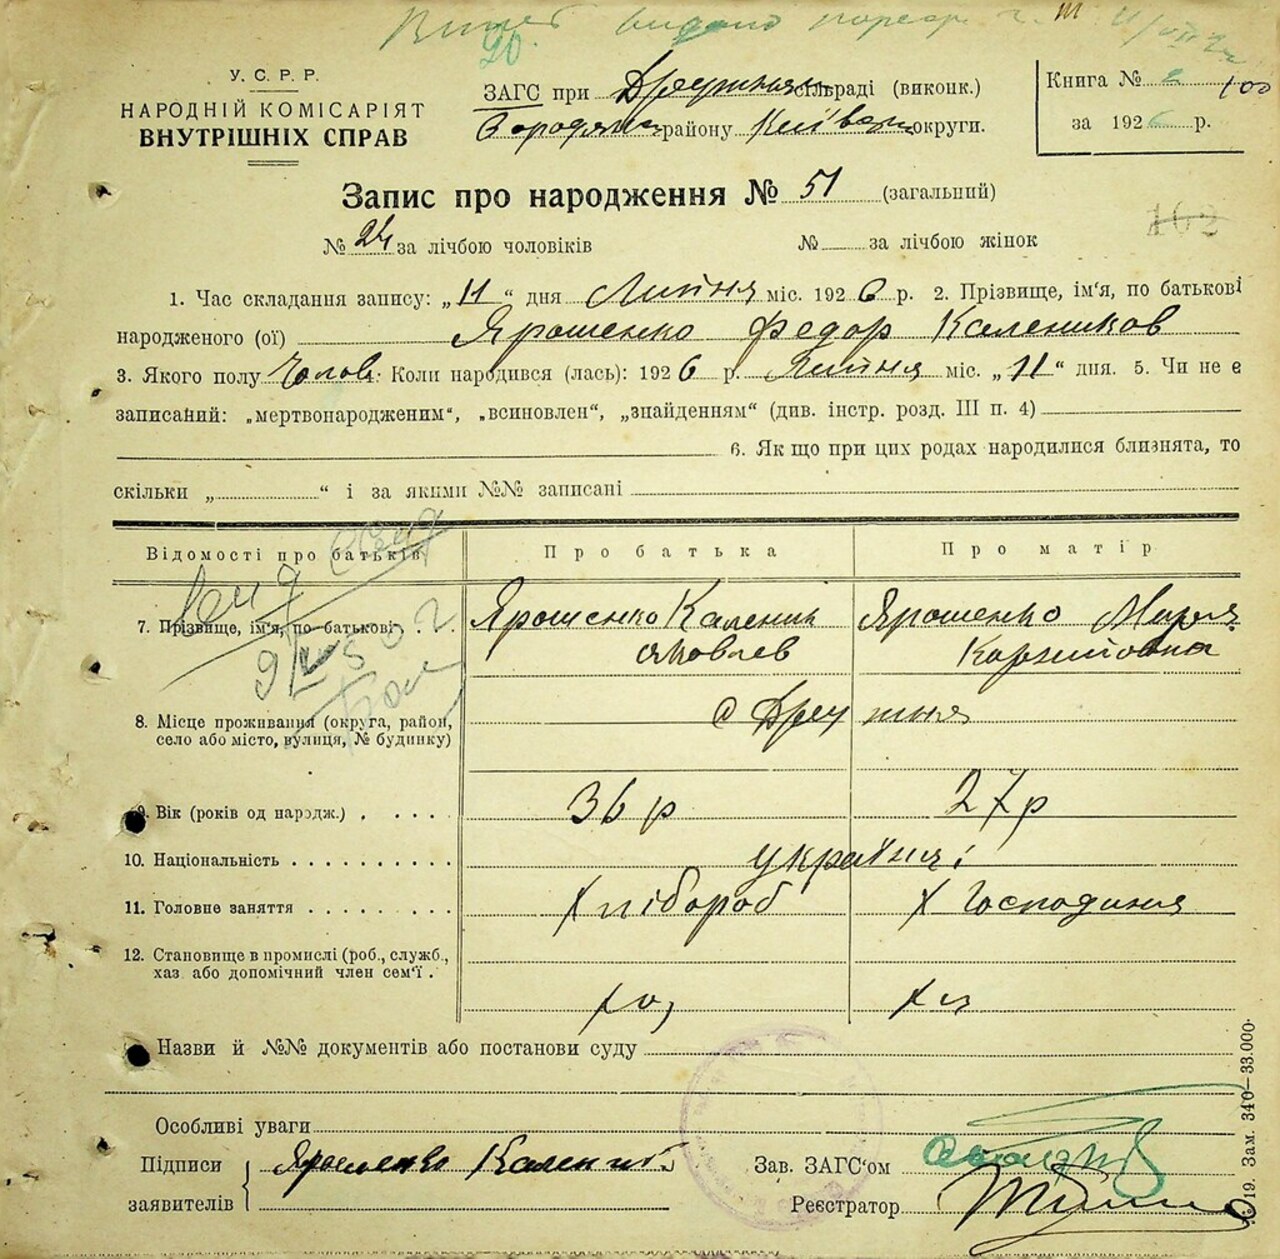 У. С. Р. Р.
НАРОДНІЙ КОМІСАРІЯТ
ВНУТРІШНІХ СПРАВ
ЗАГС при сільраді (виконк.)
району Київськ округи.
Книга № 2 100
за 1926 р.
Запис про народження № 51 (загальний)
№ 24 за лічбою чоловіків № за лічбою жінок
102
1. Час складання запису: „11“ дня Липня міс. 1926 р. 2. Прізвище, ім‘я, по батькові
народженого (ої) Ярошенко Федор Калеников
3. Якого полу Чолов 4. Коли народився (лась): 1926 р. Липня міс. „11“ дня. 5. Чи не є
записаний: „мертвонародженим“, „всиновлен“, „знайденням“ (див. інстр. розд. III п. 4)
6. Як що при цих родах народилися близнята, то
скільки „ “ і за якими №№ записані
Відомості про батьків Про батька Про матір
7. Прізвище, ім‘я, по батькові Ярошенко Каленик Ярошенко Марія
Яковлев
8. Місце проживання (округа, район,
село або місто, вулиця, № будинку)
9. Вік (років од народж.) 36 р 27 р
10. Національність україн
11. Головне заняття Хлібороб Господиня
12. Становище в промислі (роб., служб.,
хаз. або допомічний член сем‘ї
Назви й №№ документів або постанови суду
Особливі уваги
Підписи Ярошенко Каленик Зав. ЗАГС‘ом
заявителів Реєстратор
19. Зам. 340—33.000.